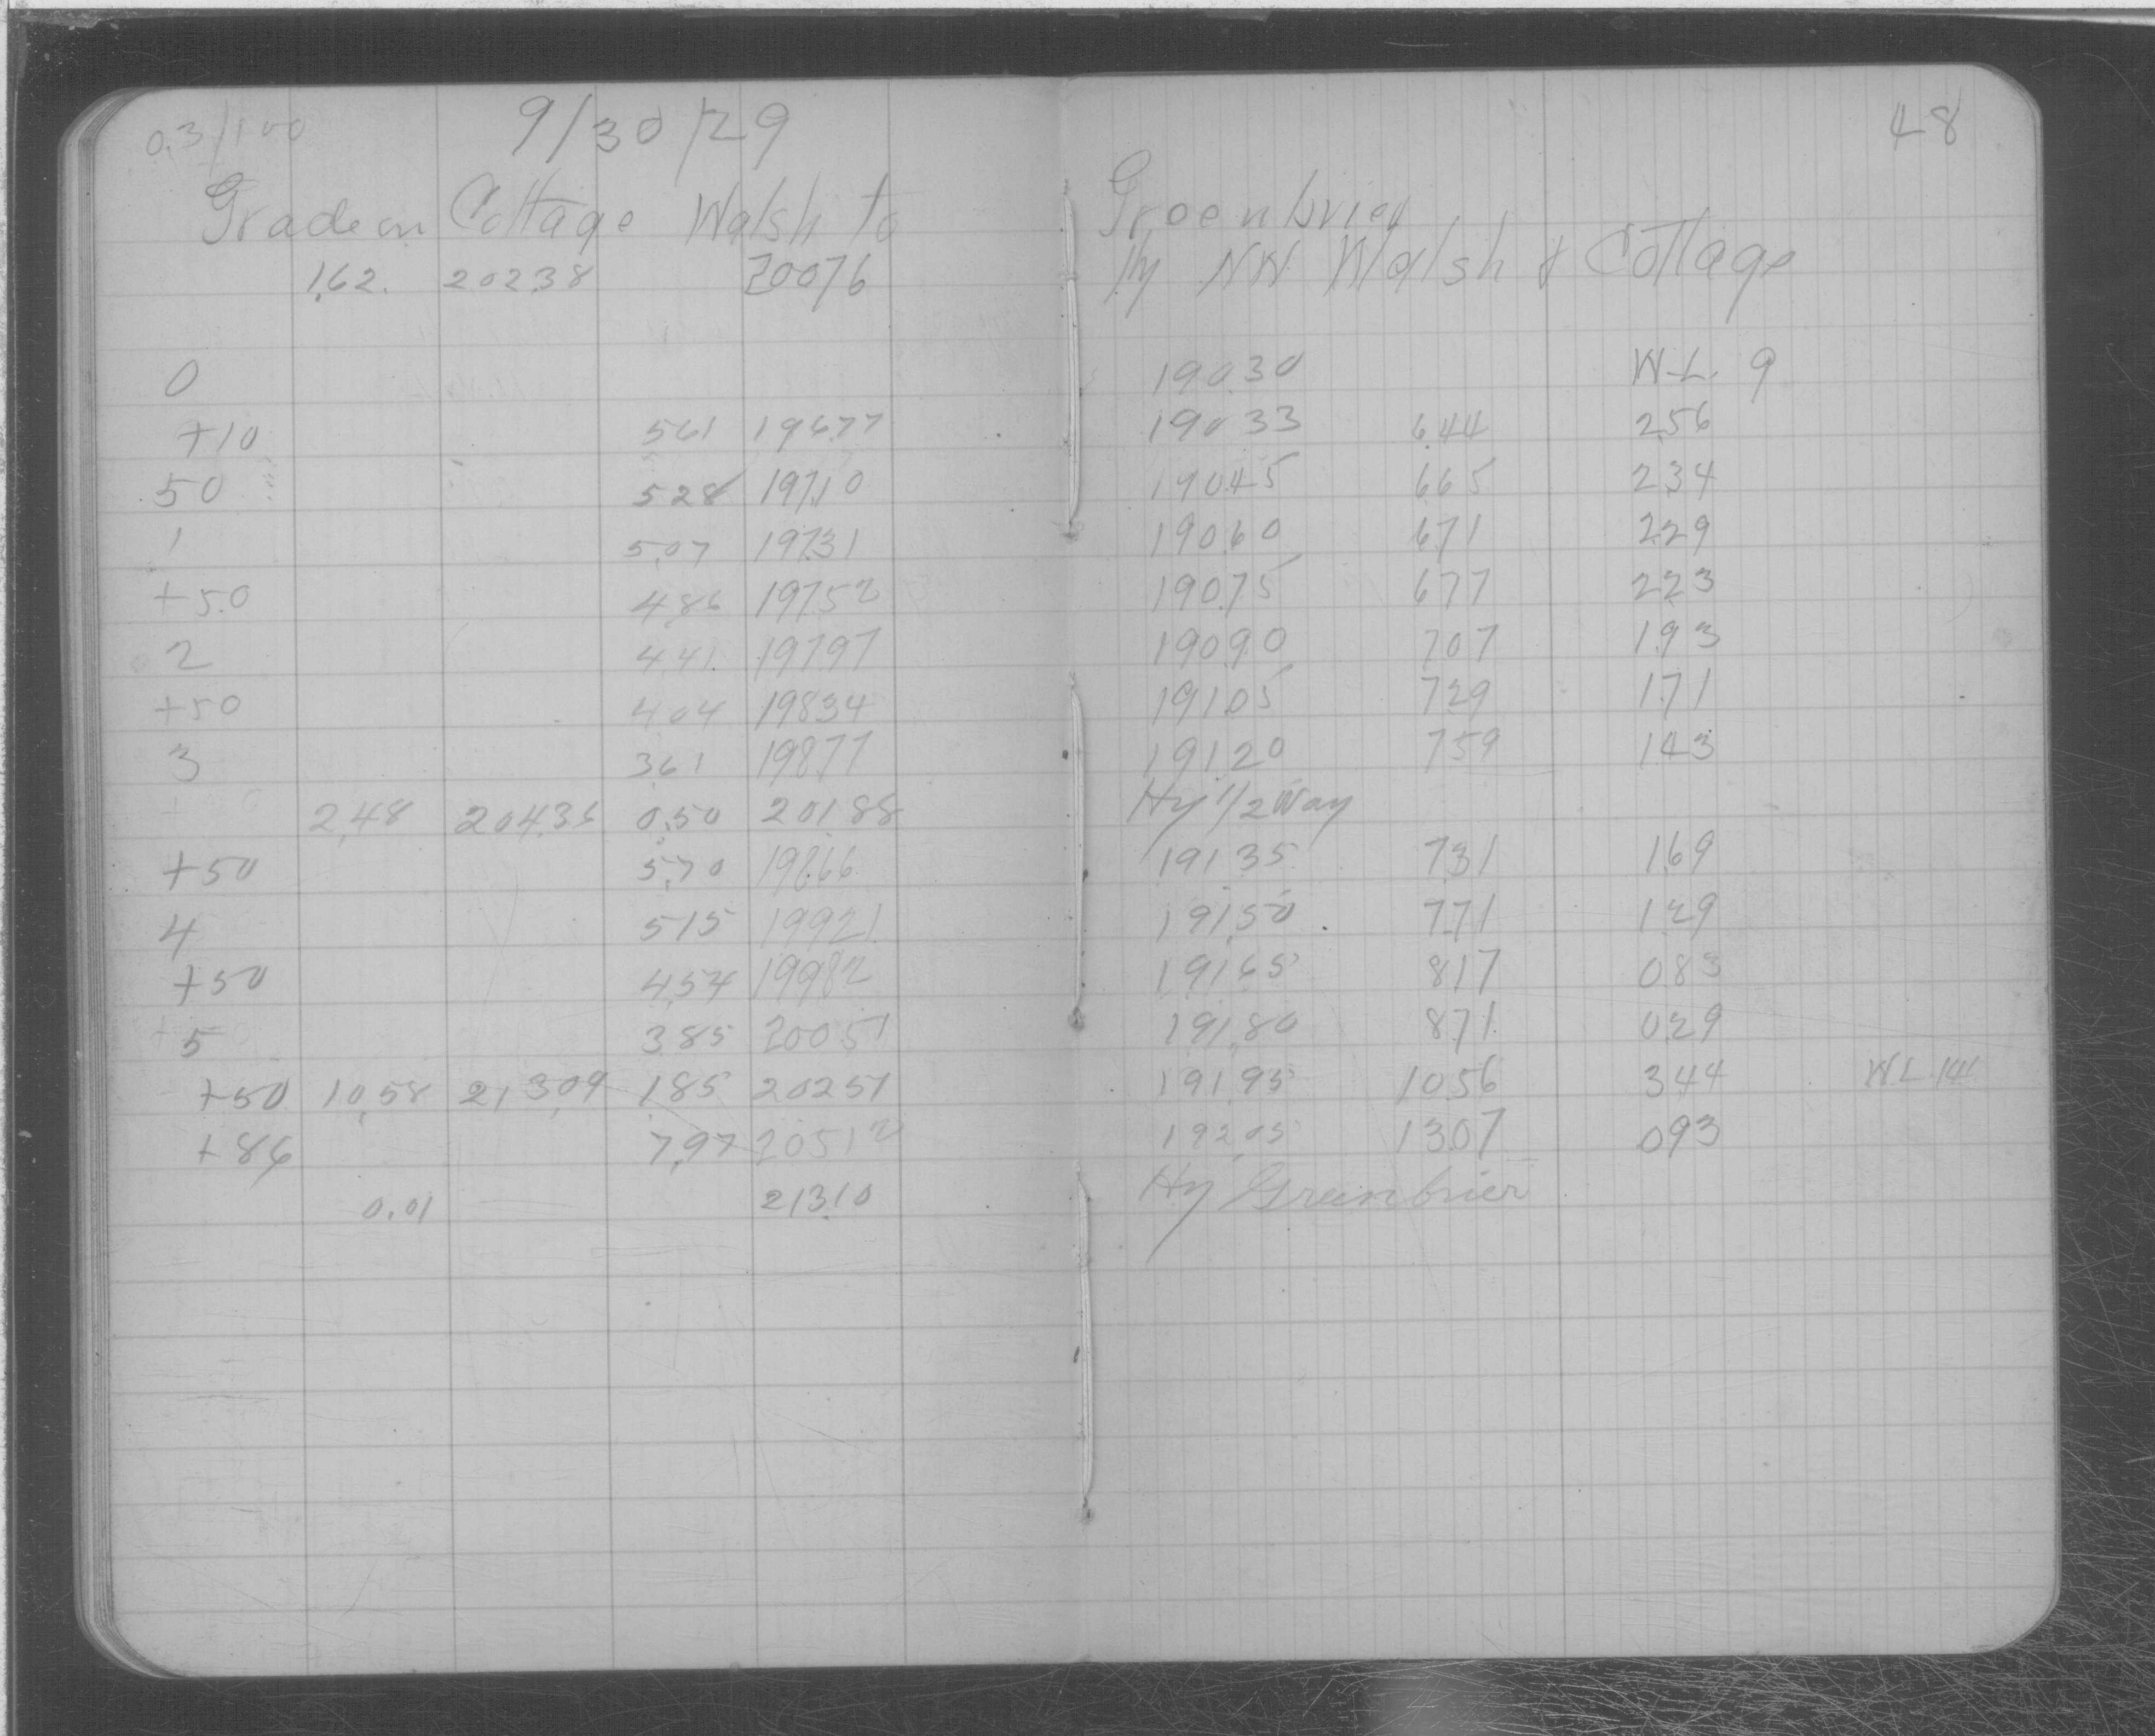 0.3/100 9/30/29 48
Grade on Cottage Walsh to Greenbrier
1.62. 202.38 200.76 Hy NW Walsh & Cottage
0 190.30 W-L. 9
+10 561 196.77 190 33 6.44 2.56
50 528 197.10 190.45 665 2.34
1 5.07 197.31 190.60 6.71 2.29
+5.0 4.86 197.52 190.75 677 2.23
2 4.41. 197.97 190.90 707 1.93
+50 4.04 198.34 191.05 729 1.71
3 3.61 198.77 191.20 759 1.43
2.48 204.36 0.50 201.88 Hy 1/2 Way
+50 5.70 198.66 191.35 7.31 1.69
4 515 199.21 191.50 7.71 1.29
+50 4.54 199.82 191.65 817 083
5 3.85 200.51 191.80 8.71 0.29
+50 10.58 213.09 1.85 202.51 191.95 1056 3.44 WL 14'
+86 7.97 205.12 192.05 13.07 .093
0.01 213.10 Hy Greenbrier